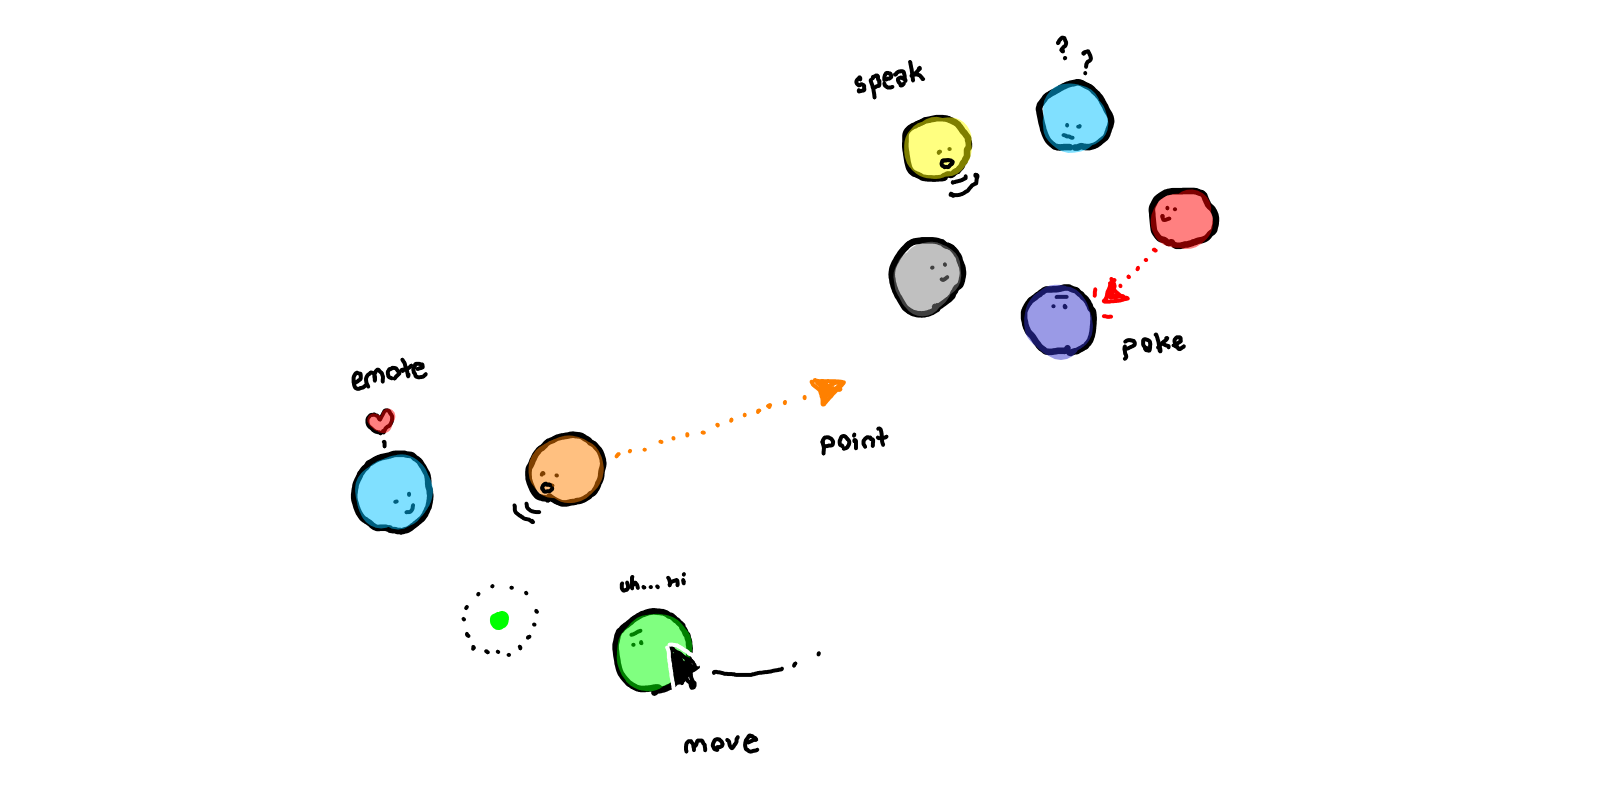 speak
? ?
poke
emote
point
uh... hi
move